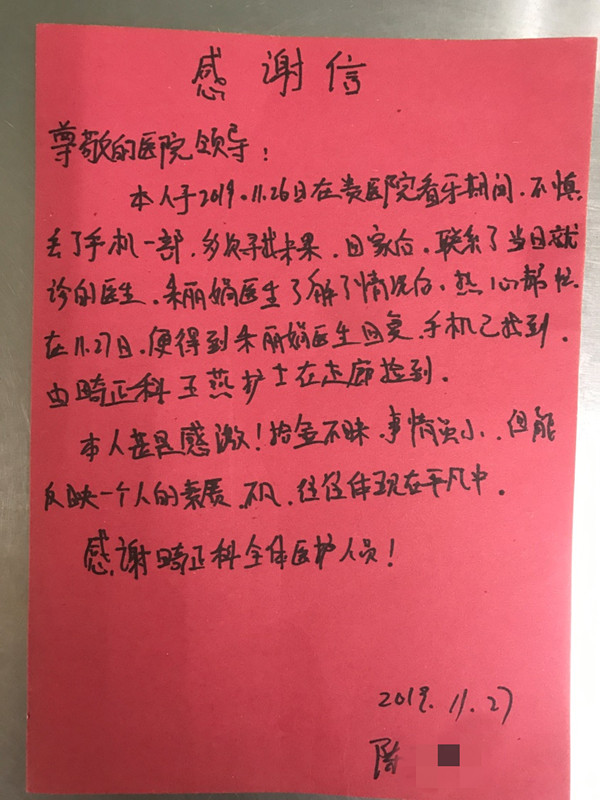 感谢信
尊敬的医院领导!
本人于2019.11.26日在贵医院看牙期间,不慎
丢了手机一部,多次寻找未果,回家后,联系了当日就
诊的医生,朱丽娟医生了解了情况后,热心帮忙
在11.27日,便得到朱丽娟医生回复,手机已找到,
由畸正科王燕护士在走廊捡到.
本人甚是感激!拾金不昧,事情虽小,但能
反映一个人的素质,不凡,往往体现在平凡中.
感谢畸正科全体医护人员!
2019.11.27
陈